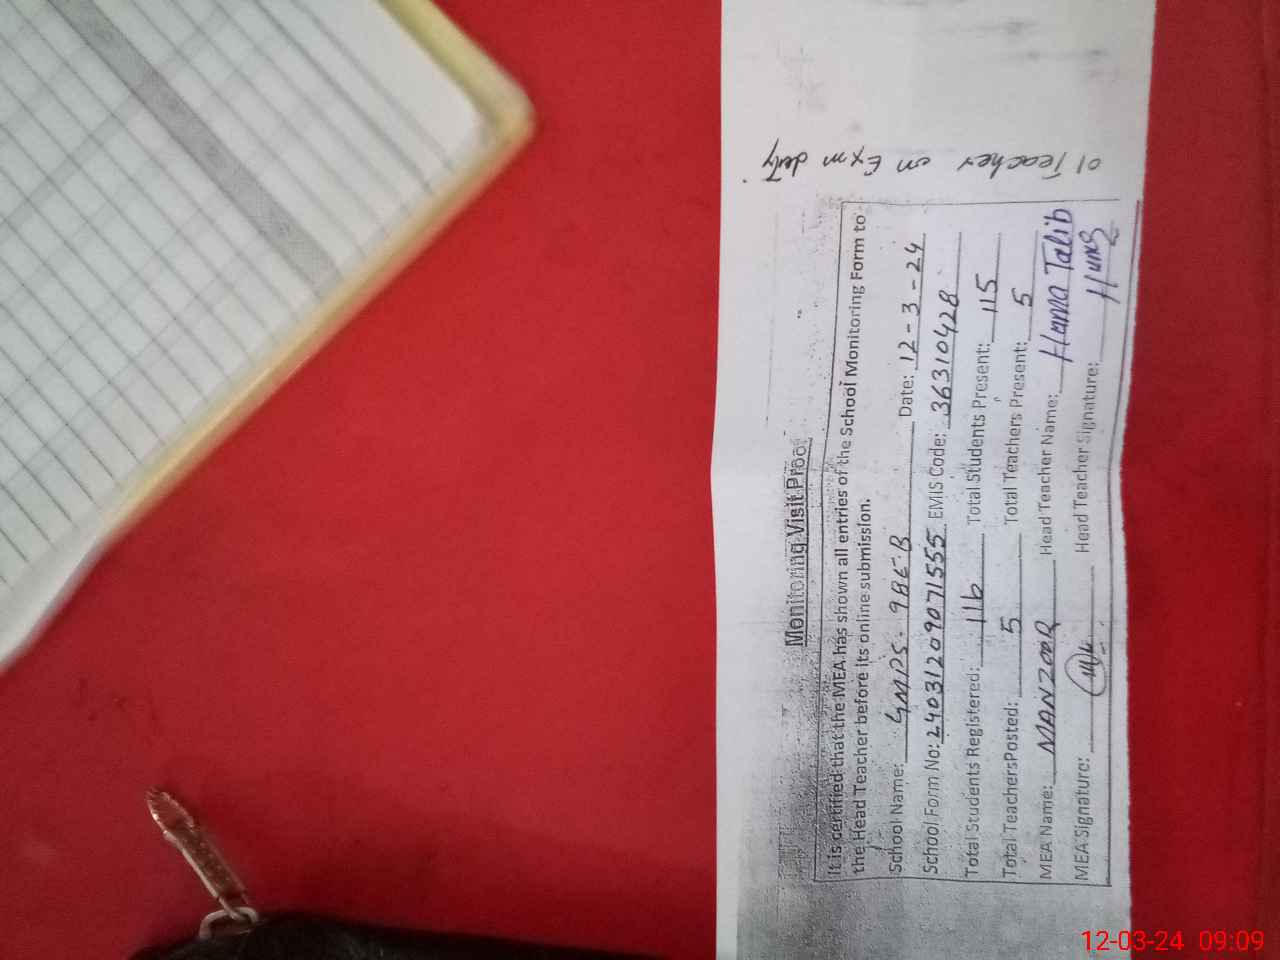 Monitoring Visit Proof
It is certified that the MEA has shown all entries of the School Monitoring Form to
the Head Teacher before its online submission.
School Name: GMPS. 98E.B Date: 12-3-24
School Form No: 24031209071555 EMIS Code: 36310428
Total Students Registered: 116 Total Students Present: 115
Total TeachersPosted: 5 Total Teachers Present: 5
MEA Name: MANZOOR Head Teacher Name: Huma Talib
MEA Signature: Head Teacher Signature:
01 Teacher on Exm duty
12-03-24 09:09